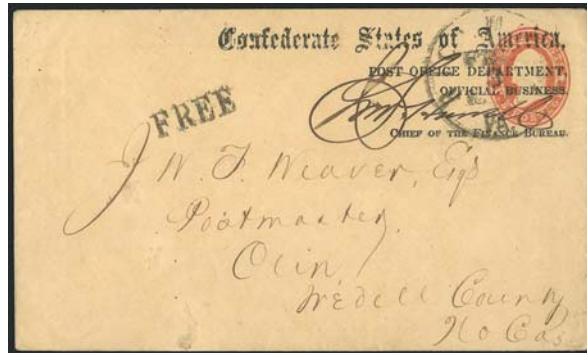 Confederate States of America,
POST OFFICE DEPARTMENT,
OFFICIAL BUSINESS.
CHIEF OF THE FINANCE BUREAU.
FREE
J W. F. Weaver, Esq
Postmaster,
Olin,
Iredell County
No Ca
VA